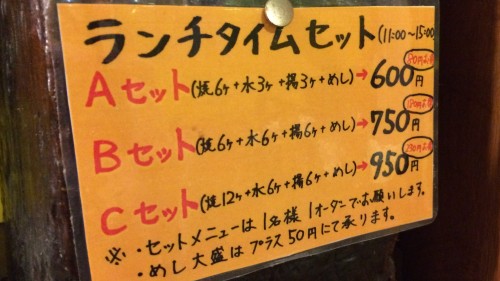 ランチタイムセット(11:00〜15:00
Aセット(焼6ヶ+水3ヶ+揚3ヶ+めし)→600円
Bセット(焼6ヶ+水6ヶ+揚6ヶ+めし)→750円
Cセット(焼12ヶ+水6ヶ+揚6ヶ+めし)→950円
※・セットメニューは1名様1オーダーでお願いします。
・めし大盛はプラス50円にて承ります。